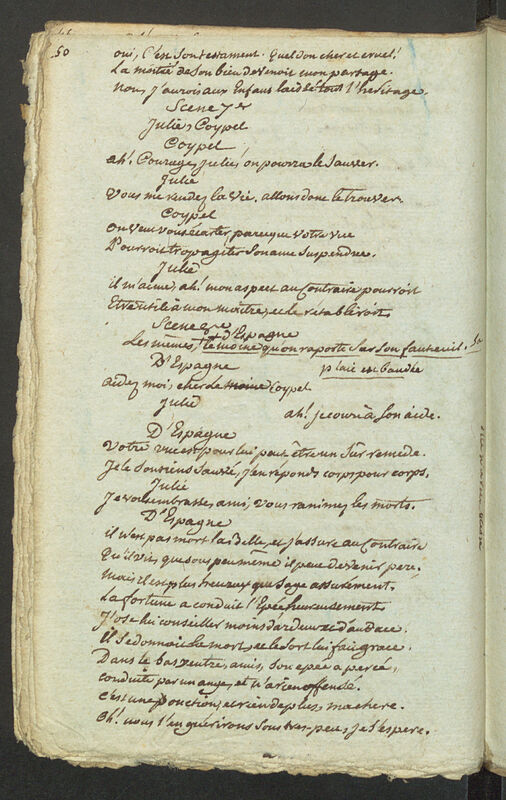 50
oui, C'est son testament. quel don cher et cruel!
La moitié de son bien devenoit mon partage.
Nous j'aurois aux Enfans laissé tout l'heritage.
Scene 7e
Julie, Coypel
Coypel
ah! Courage, julie, on pourra le Sauver.
Julie
Vous me rendez la vie, allons donc le trouver.
Coypel
On veut vous écarter, parceque votre vue
Pourroit trop agiter son ame suspendue.
Julie
il m'aime, ah! mon aspect au Contraire pourroit
Etre utile à mon maitre, et le rétabliroit.
Scene 8e
Les mêmes, d'Espagne
le moine qu'on raporte sur son fauteuil. Sa
plaie est bandée
D'Espagne
aidez moi, cher Coypel
Julie
ah! je cours à son aide.
D'Espagne
Votre vue est pour lui peut-être un sûr remede.
Je le soutiens sauvé, j'en réponds corps pour corps.
Julie
Je vous embrasse, ami, vous ranimez les morts.
D'Espagne
il n'est pas mort la belle, et j'assure au Contraire
Qu'il vit, que sous peu même il peut devenir pere.
Mais il est plus heureux que sage assurément.
La fortune a conduit l'Epée heureusement.
J'ose lui conseiller moins d'ardeur et d'audace.
Il se donnoit la mort, et le sort lui fait grace.
Dans le bas ventre, amis, son epée a percé,
conduite par un ange, et n'a rien offensé.
c'est une ponction, et rien de plus, ma chere.
Oh! nous l'en guérirons sous tres-peu, je l'espere.